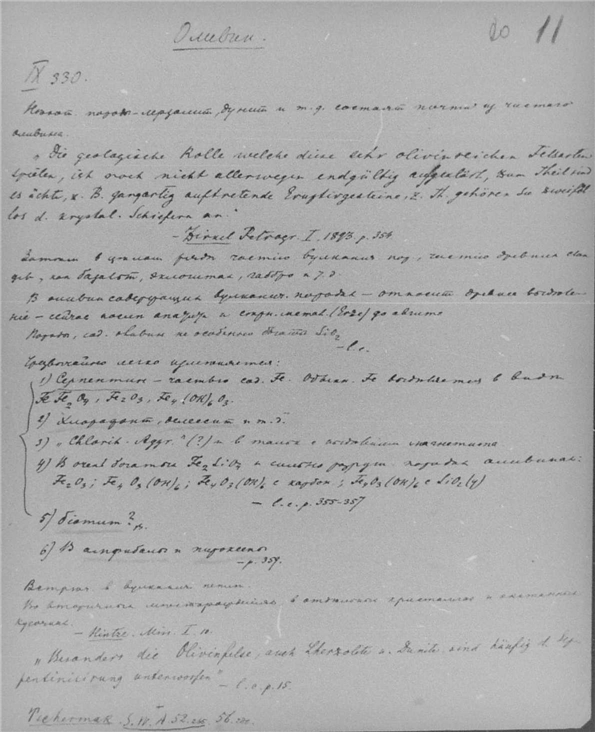 Оливин.
20 11
IX 330.
Некот. породы – лерзолит, дунит и т.д. состоят почти из чистого
оливина.
„Die geologische Rolle welche diese sehr olivinreichen Felsarten
spielen, ist noch nicht allerwegen endgültig aufgeklärt, zum Theil sind
es ächte, z. B. gangartig auftretende Eruptivgesteine, z. Th. gehören sie zweifel
los d. krystal. Schiefern an."
– Zirkel Petrogr. I, 1893, p. 354
Затем в целом ряде частью вулканич. пор., частью древних
как базальт, габбро и т.д.
В оливин содержащих вулканич. породах –
– сейчас после апатита и до августа
Породы, сод. оливин не особенно богаты SiO2
– l.c.
Чрезвычайно легко изменяется:
1) Серпентин – частью сод. Fe. Обыкн. Fe выделяется в виде
Fe2O3, Fe4(OH)6O3.
2) делессит и т.д.
3) „Chlorit-Aggr." (?) и в тальк с выделением магнетита
4) В очень богатых Fe2SiO4 и сильно породах оливина:
Fe2O3; Fe4O3(OH)6; Fe4O3(OH)6 с карбон.; Fe4O3(OH)6 с SiO2
– l.c. p. 355-357
5) биотит?
6) В амфиболы и пироксены
– p. 357.
Встреч. в вулканич. пепле.
Во вторичных месторождениях, в отдельных кристаллах и окатанных
кусочках.
– Hintze. Min. I.
„Besonders die Olivinfelse, auch Lherzolite u. Dunite sind häufig d. Ser
pentinisirung unterworfen"
– l.c. p. 15.
Tschermak. S. W. A 52. 56.